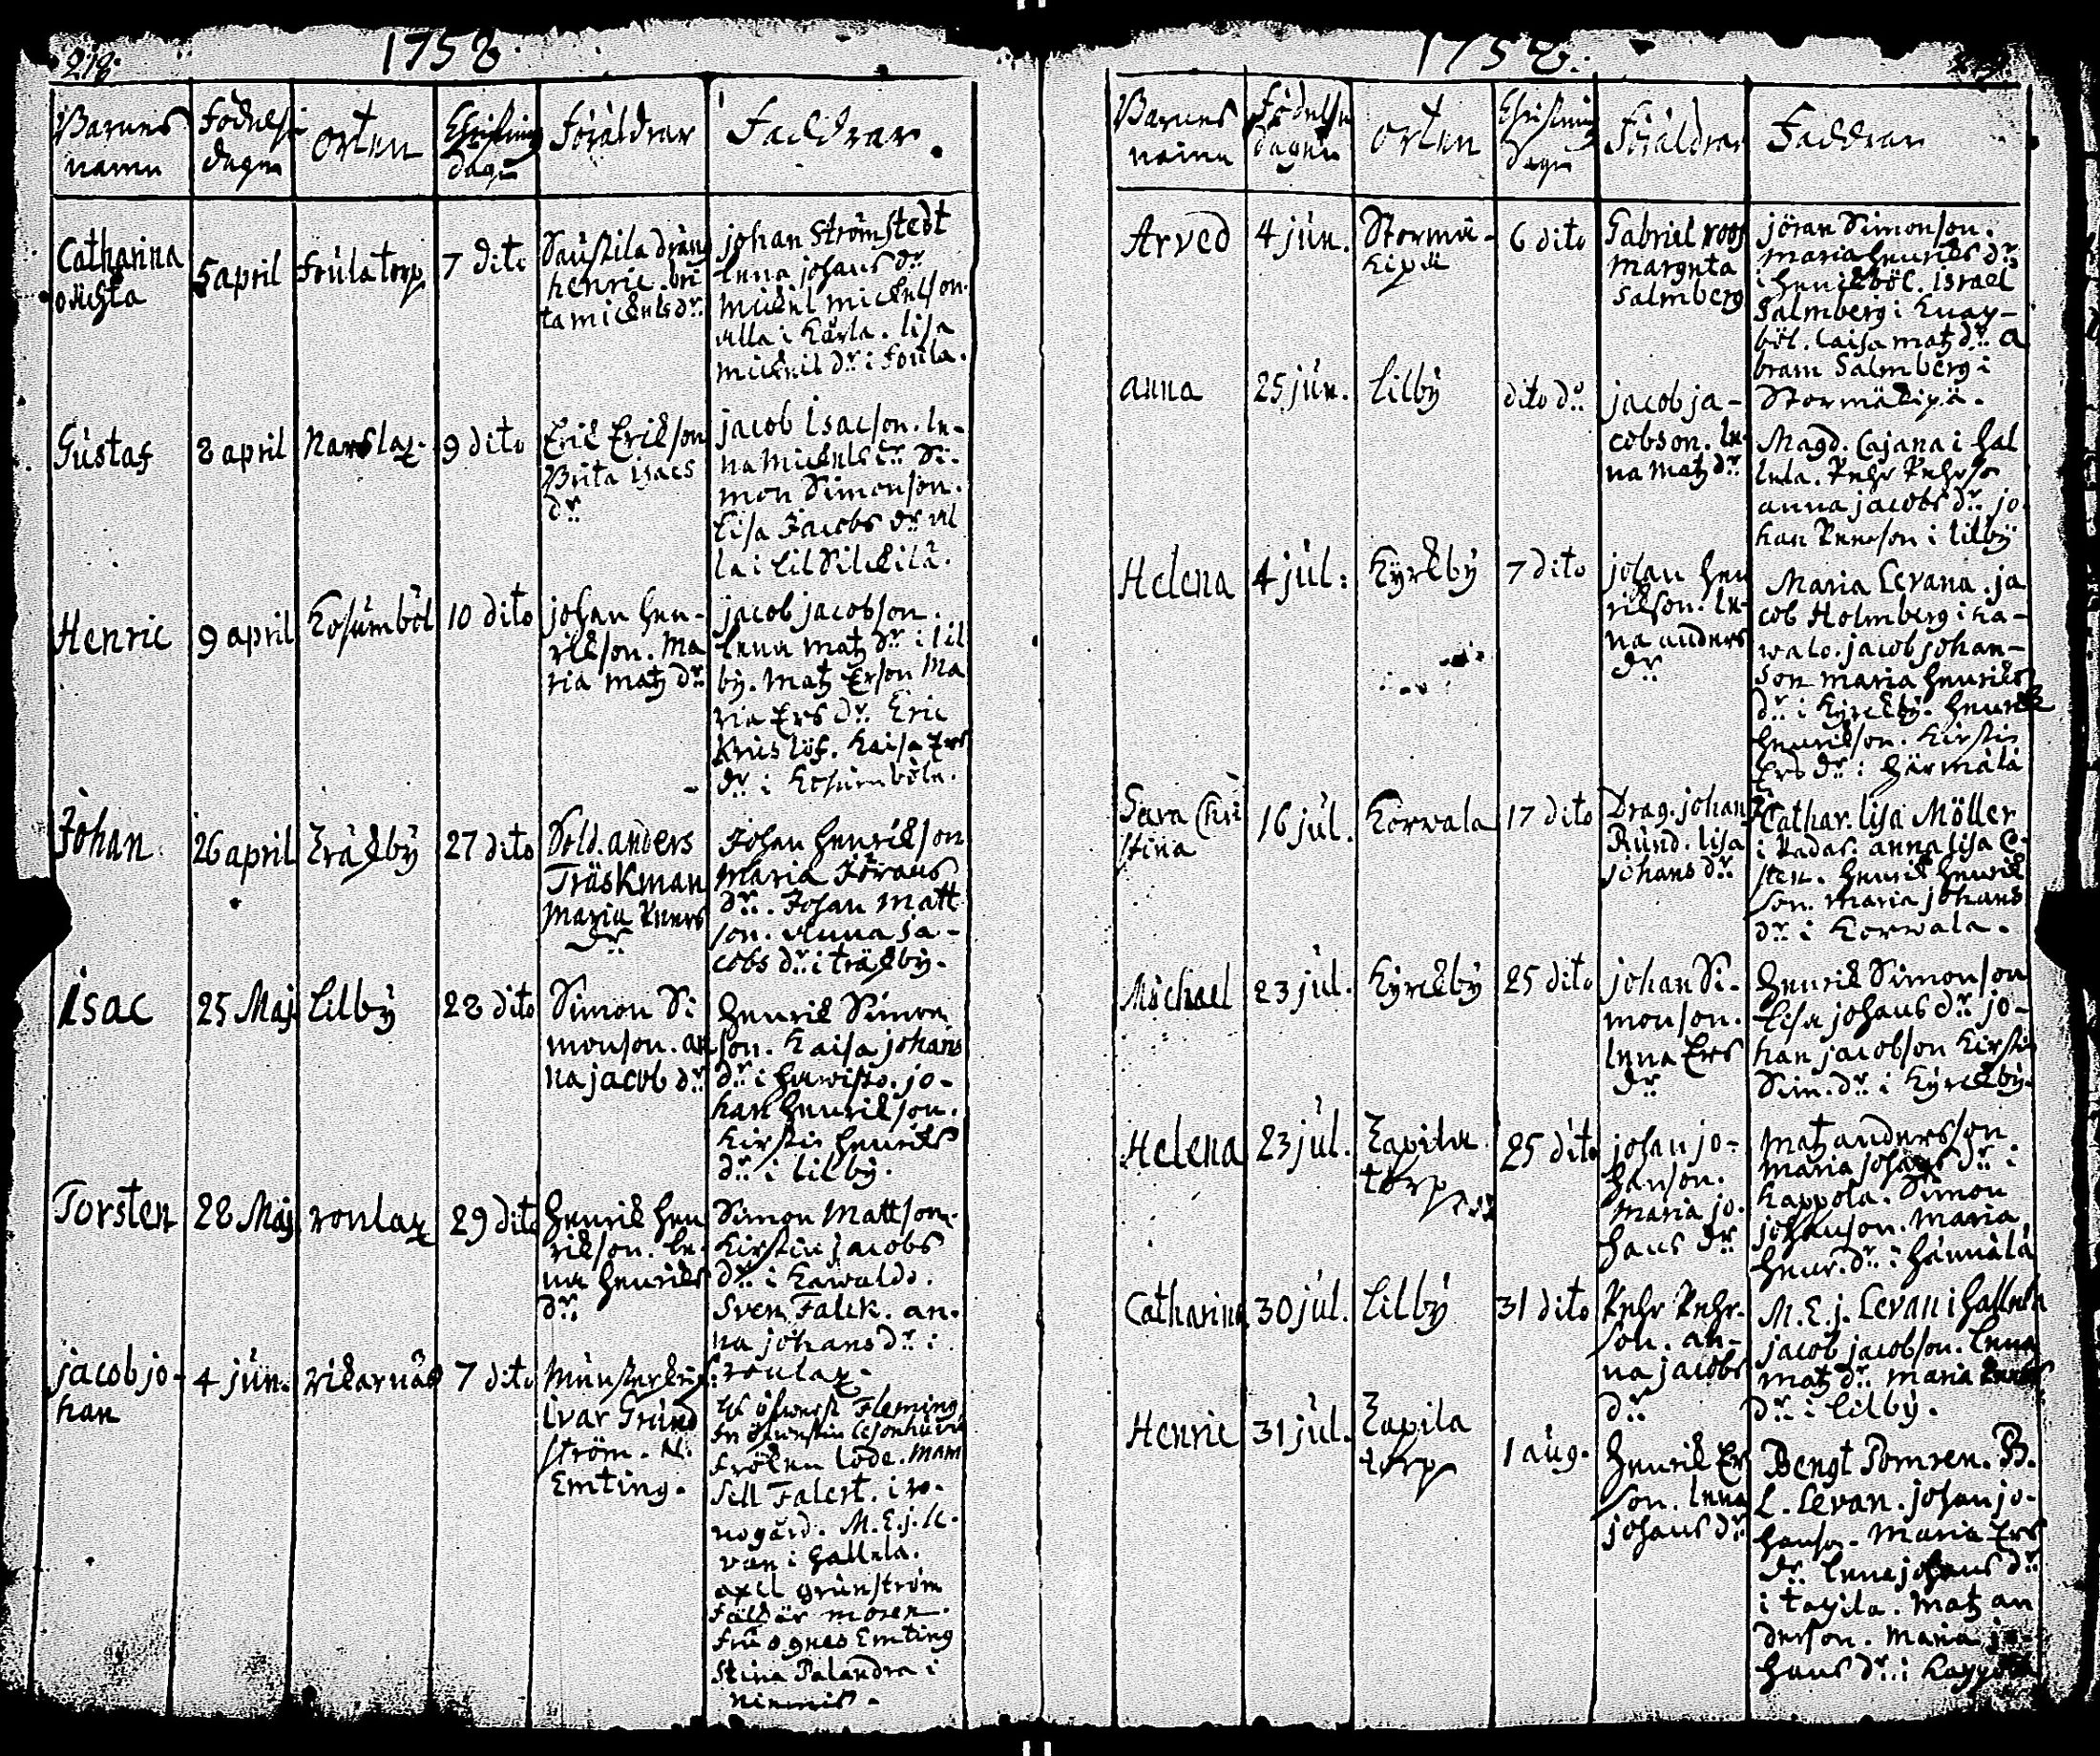 218.
1758.
Barnes
namn
Födelse
dagen
Orten
Christnings
dagen
Föräldrar
Faddrar.
Catharina
5 april
7 dito
henric. bri
ta mickels dr.
johan Strömstedt
Lena johans dr
Mickel mickelson.
ulla i Kärla. lisa
mickels dr. i
Gustaf
8 april
Narslax.
9 dito
Eric Ericson
Brita isacs
dr.
jacob Isacson. le-
na Mickels dr. Si-
mon Simonson.
Lisa Jacobs dr. ul
la i
Henric
9 april
Kosumböl
10 dito
johan hen-
rikson. Ma
ria matz dr.
jacob jacobson.
lena matz dr. i lil
by. matz Erson Ma
ria Ers dr. Eric
Kaisa Ers
dr. i Kosumböle.
Johan
26 april
Träskby
27 dito
Sold. anders
Träskman
Maria
dr.
Johan henrikson
Maria Jörans
dr. Johan Matt
son. Anna Ja-
cobs dr. i träskby.
Isac
25 Maj
Lilby
28 dito
Simon Si
monson. an
na jacob dr.
henrik Simon
son. Kaisa johans
dr. i jo-
han henrikson.
Kirstin henriks
dr. i lilby.
Torsten
28 Maj
ronlax
29 dito
henrik hen
rikson. le-
na henriks
dr.
Simon Mattson.
Kirstin Jacobs
dr. i
Sven Falck. an-
na johans dr. i
ronlax.
jacob jo-
han
4 jun.
vikarnäs
7 dito
ivar Grund
ström. N.
Emting.
Fleming
fröken lode. Mam
sell i ro-
nogård. M. E. j. le-
van i hallela.
axel grunström
fru agnes Emting
Stina Palandra i
1758.
Barnes
namn
Födelse
dagen
Orten
Christnings
dagen
Föräldrar
Faddrar
Arved
4 jun.
Stormä-
kipä
6 dito
Gabriel roos
Margreta
Salmberg
jöran Simonson.
maria henriks dr.
i henrikböl. israel
Salmberg i
böl. Caisa matz dr. a
bram Salmberg i
Stormäkipä.
anna
25 jun.
Lilby
dito dr.
jacob ja-
cobson. le-
na matz dr.
Magd. Cajana i hal
lela. Pehr Pehrso
anna jacobs dr. jo
han i lilby
Helena
4 jul.
Kyrkby
7 dito
johan hen
rikson. le-
na anders
dr.
Maria Levana. ja
cob Holmberg i ka-
wals. jacob johan-
son maria henriks
dr. i Kyrkby. henrik
henrikson. Kirstin
Ers dr. i härmälä
Sara Chri
stina
16 jul.
Korwala
17 dito
Drag. johan
Rund. lisa
johans dr.
Cathar. lisa Möller
i Padas. anna lisa
henrik henrik
son. maria johans
dr. i Korwala.
Michael
23 jul.
Kyrkby
25 dito
johan Si-
monson.
lena Ers
dr.
henrik Simonson
Lisa johans dr. jo-
han jacobson Kirstin
Sim. dr. i Kyrkby.
Helena
23 jul.
Tapila
torp
25 dito
johan jo-
hanson.
maria jo-
hans dr.
Matz andersson.
maria johans dr. i
Kappola. Simon
johanson. Maria
henr. dr. i hännälä
Catharina
30 jul.
Lilby
31 dito
Pehr Pehr-
son. an-
na jacobs
dr.
M. E. j. Levan i hallela
jacob jacobson. lena
matz dr. maria
dr. i Lilby.
Henric
31 jul.
Tapila
torp
1 aug.
henrik Er
son. lena
johans dr.
Bengt Pomren. B.
L. Levan. johan jo-
hanson. Maria Ers
dr. lena johans dr.
i tapila. Matz an
derson. Maria jo-
hans dr. i Kappola